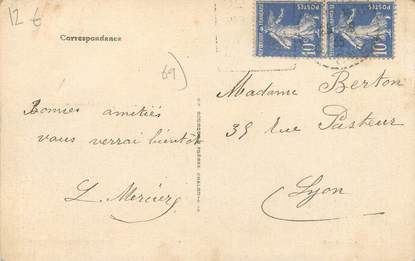 12 €
Correspondance
69
Bonnes amitiés
vous verrai bientôt
L. Mercier
POSTES
10c
POSTES
10c
Madame Berton
39 Rue Pasteur
Lyon